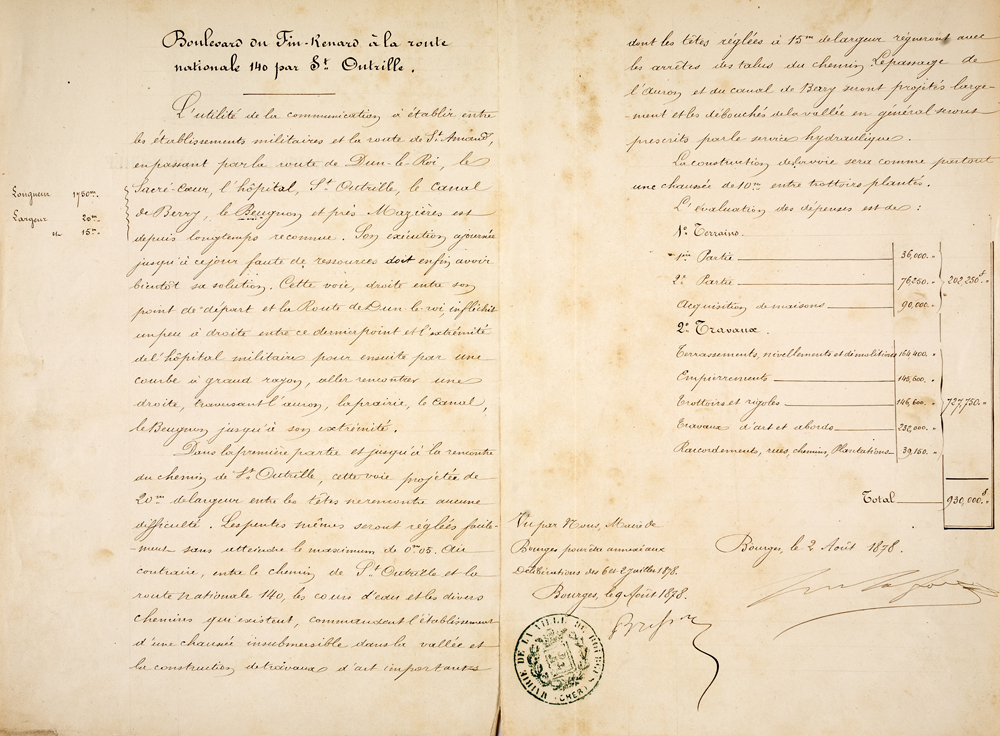 Boulevard du Fin-Renard à la route
nationale 140 par St. Outrille.
L'utilité de la communication à établir entre
les établissements militaires et la route de St. Amand,
en passant par la route de Dun-le-Roi, le
Sacré-Cœur, l'hôpital, St. Outrille, le Canal
de Berry, le Beugnon et près Mazières est
depuis longtemps reconnue. Son exécution ajournée
jusqu'à ce jour faute de ressources doit enfin avoir
bientôt sa solution. Cette voie, droite entre son
point de départ et la Route de Dun-le-roi infléchit
un peu à droite entre ce dernier point et l'extrémité
de l'hôpital militaire pour ensuite par une
courbe à grand rayon, aller rencontrer une
droite, traversant l'auron, la prairie, le Canal,
le Beugnon jusqu'à son extrémité.
Longueur 1780m.
Largeur 20m.
" 15m.
Dans la première partie et jusqu'à la rencontre
du chemin de St. Outrille, cette voie projetée de
20m de largeur entre les têtes ne rencontre aucune
difficulté. Les pentes mêmes seront réglées facile-
-ment sans atteindre le maximum de 0m05. Au
contraire, entre le chemin de St. Outrille et la
route nationale 140, les cours d'eau et les divers
chemins qui existent, commandent l'établissement
d'une chaussée insubmersible dans la vallée et
la construction de travaux d'art importants
dont les têtes réglées à 15m de largeur régneront avec
les arrêtes des talus du chemin. Le passage de
l'auron et du canal de Berry seront projetés large-
-ment et les débouchés de la vallée en général seront
prescrits par le service hydraulique.
La construction de la voie sera comme partout
une chaussée de 10m entre trottoirs plantés.
L'évaluation des dépenses est de :
1° Terrains.
1ère Partie 36,000. "
2e Partie 76250. " 202,250f "
Acquisition de maisons 90,000. "
2° Travaux.
Terrassements, nivellements et démolitions 164,400. "
Empierrements 145,600. "
Trottoirs et rigoles 146,600. " 727,750. "
Travaux d'art et abords 232,000. "
Raccordements, rues, chemins, Plantations 39,150. "
Total 930,000f. "
Vu par Nous, Maire de
Bourges pour être annexé aux
Délibérations des 6 et 27 juillet 1878.
Bourges, le 9 Août 1878.
Bourges, le 2 Août 1878.
MAIRIE DE LA VILLE DE BOURGES
(CHER)